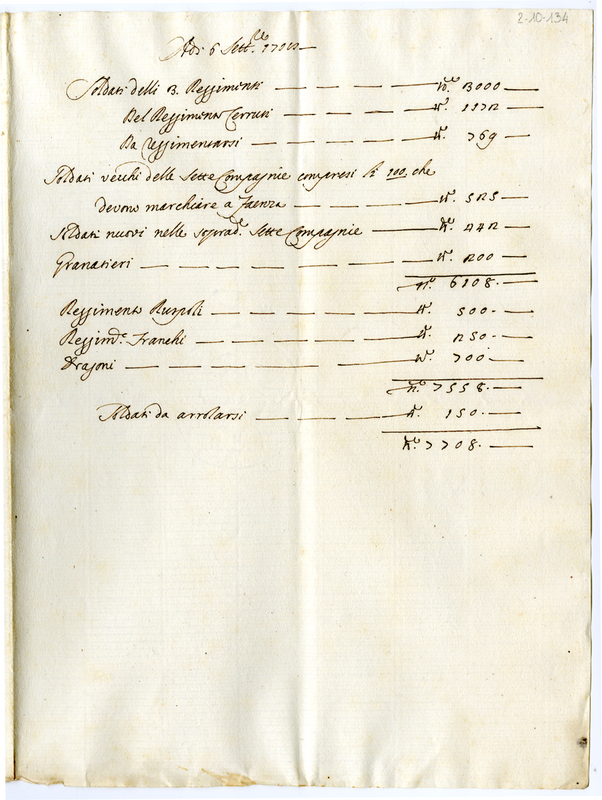 2-10-134
Adi 6 Sett.re
Soldati delli 3. Reggimenti — — — — n.o 3000 —
Del Reggimento Cerruti — — — n.o 1172 —
Da reggimentarsi — — — — n.o 769 —
Soldati vecchi delle Sette Compagnie compresi li 100 che
devono marchiare a Faenza — — — — n.o 525 —
Soldati nuovi nelle soprad.e Sette Compagnie — n.o 442 —
Granatieri — — — — — — — — n.o 200 —
n.o 6108. —
Reggimento Ruspoli — — — — — n.o 500. —
Reggim.to Franchi — — — — — n.o 250. —
Dragoni — — — — — — — n.o 700 —
n.o 7558. —
Soldati da arrolarsi — — — — n.o 150. —
n.o 7708. —